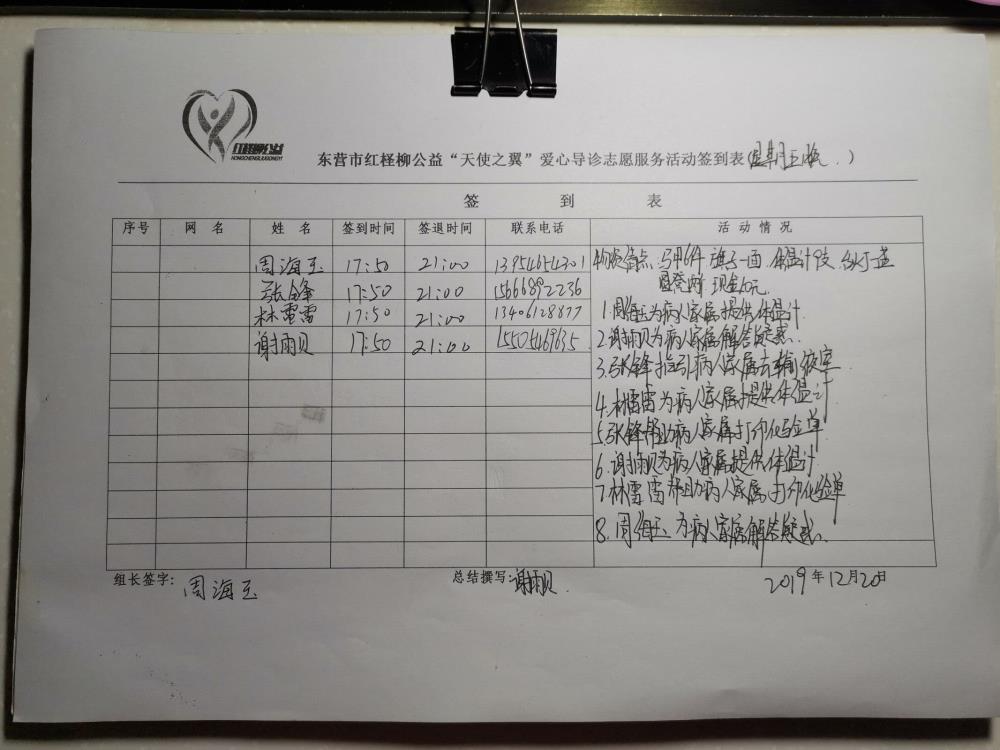 红柽柳公益
HONGCHENGLIUGONGYI
东营市红柽柳公益“天使之翼”爱心导诊志愿服务活动签到表(星期五晚)
签 到 表
序号 网 名 姓 名 签到时间 签退时间 联系电话 活 动 情 况
周海玉 17:50 21:00 13954654301 物资清点 马甲6件 旗子一面 体温计7支 台灯一盏
张锋 17:50 21:00 15666892236 现金6元.
林雷雷 17:50 21:00 13406128877 1.周海玉为病人家属提供体温计
谢雨贝 17:50 21:00 15505469635 2.谢雨贝为病人家属解答疑惑.
3.张锋指引病人家属去输液室
4.林雷雷为病人家属提供体温计
5.张锋帮助病人家属打印化验单
6.谢雨贝为病人家属提供体温计
7.林雷雷帮助病人家属打印化验单
8.周海玉为病人家属解答疑惑.
组长签字: 周海玉 总结撰写: 谢雨贝. 2019年12月20日